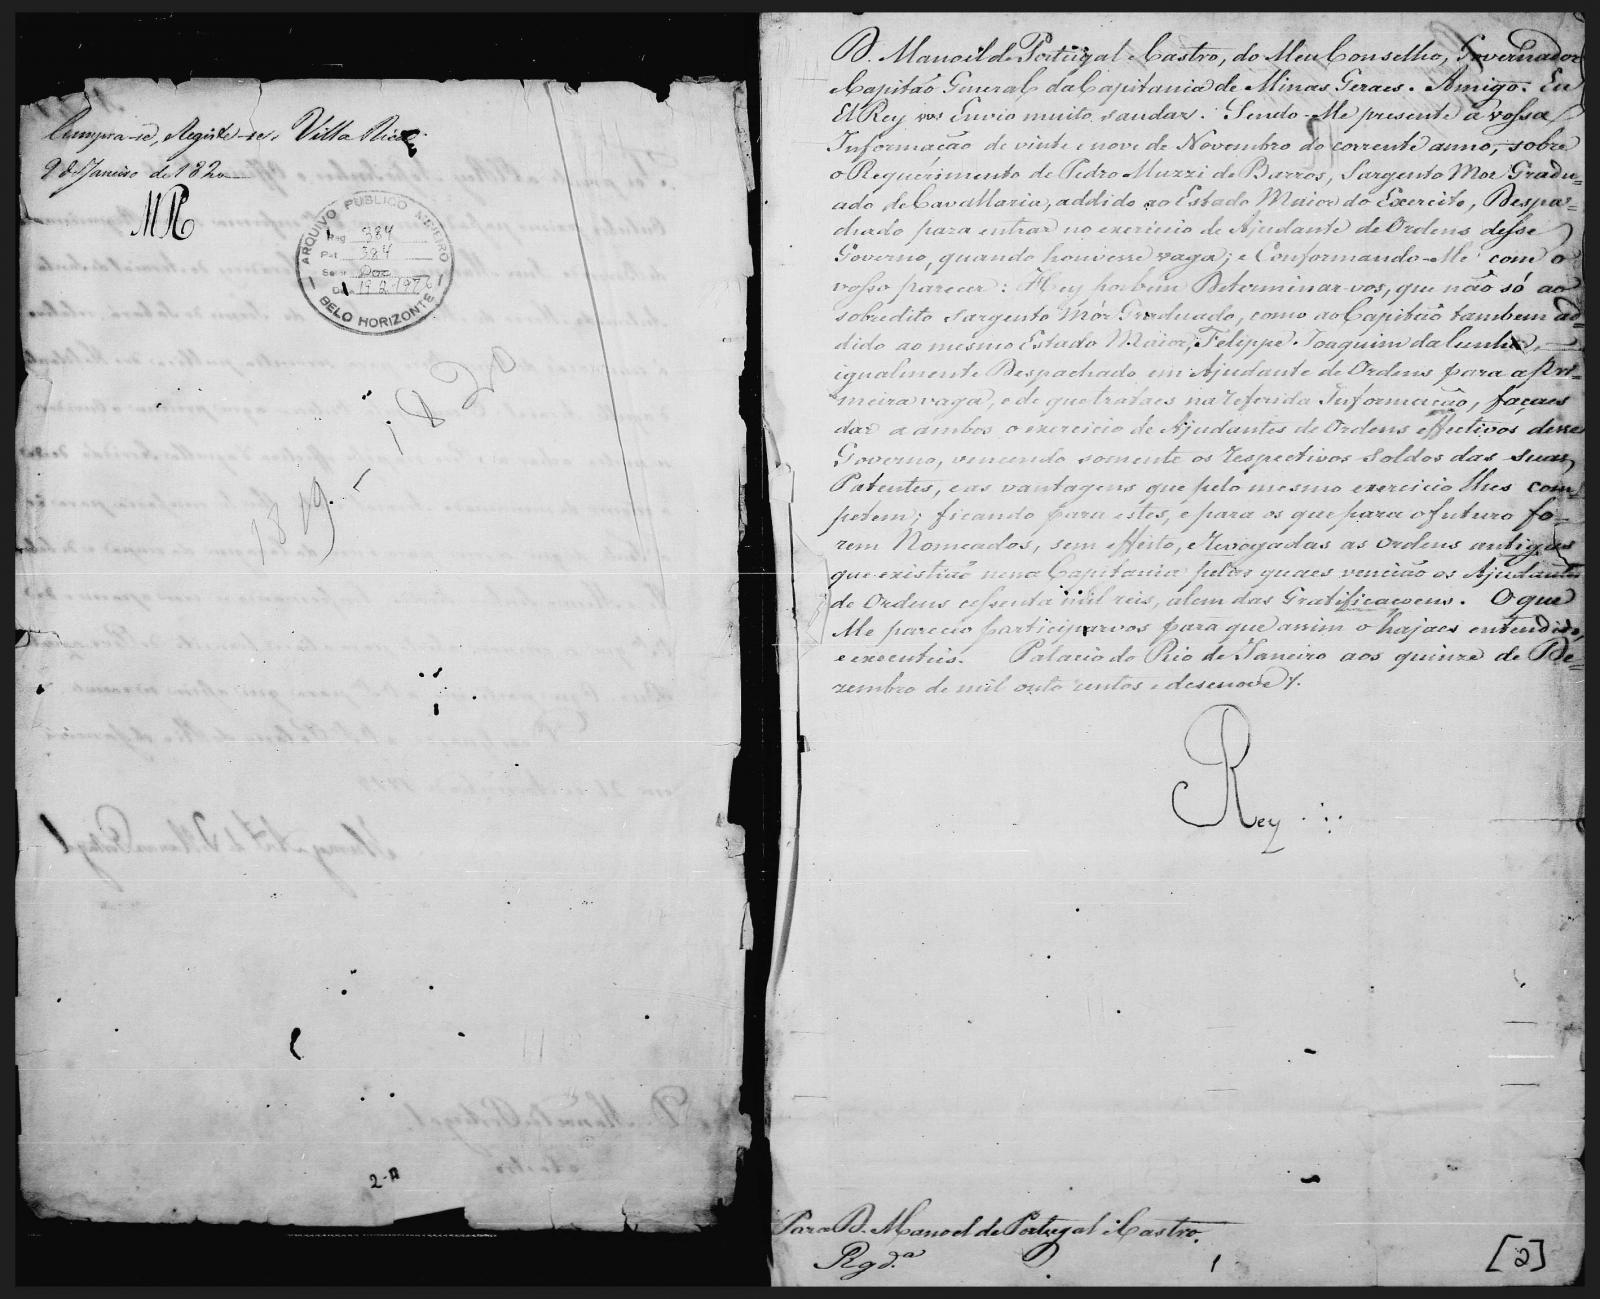 Cumpra-se, Registe-se. Villa Rica
9 de Janeiro de 1820
ARQUIVO PUBLICO MINEIRO
Reg 384
Pat 384
Doc
Data 19 2 197
BELO HORIZONTE
1819 - 1820
2-A
D. Manoel de Portugal e Castro, do Meu Conselho, Governador
e Capitão General da Capitania de Minas Geraes. Amigo. Eu
El Rey vos Envio muito saudar. Sendo-Me presente a vossa
Informacão de vinte e nove de Novembro do corrente anno, sobre
o Requerimento de Pedro Muzzi de Barros, Sargento Mor Gradu=
ado de Cavallaria, addido ao Estado Maior do Exercito, Despa=
chado para entrar no exercicio de Ajudante de Ordens desse
Governo, quando houvesse vaga; e Conformando-Me com o
vosso parecer: Hey por bem Determinar-vos, que não só ao
sobredito Sargento Mór Graduado, como ao Capitão tambem ad=
dido ao mesmo Estado Maior, Felippe Joaquim da Cunha,
igualmente Despachado em Ajudante de Ordens para a pri=
meira vaga, e de que trataes na referida Informacão, façaes
dar a ambos o exercicio de Ajudantes de Ordens effectivos desse
Governo, vencendo somente os respectivos Soldos das suas
Patentes, e as vantagens que pelo mesmo exercicio lhes com=
petem; ficando para estes, e para os que para o futuro fo=
rem Nomeados, sem effeito, e revogadas as Ordens antigas
que existião nessa Capitania pelas quaes vencião os Ajudantes
de Ordens cessenta mil reis, alem das Gratificacoens. O que
Me pareceo participar-vos para que assim o hajaes entendido,
e executeis. Palacio do Rio de Janeiro aos quinze de De=
zembro de mil oito centos e desenove.
Rey
Para D. Manoel de Portugal e Castro.
Rgd.ª
1
[2]